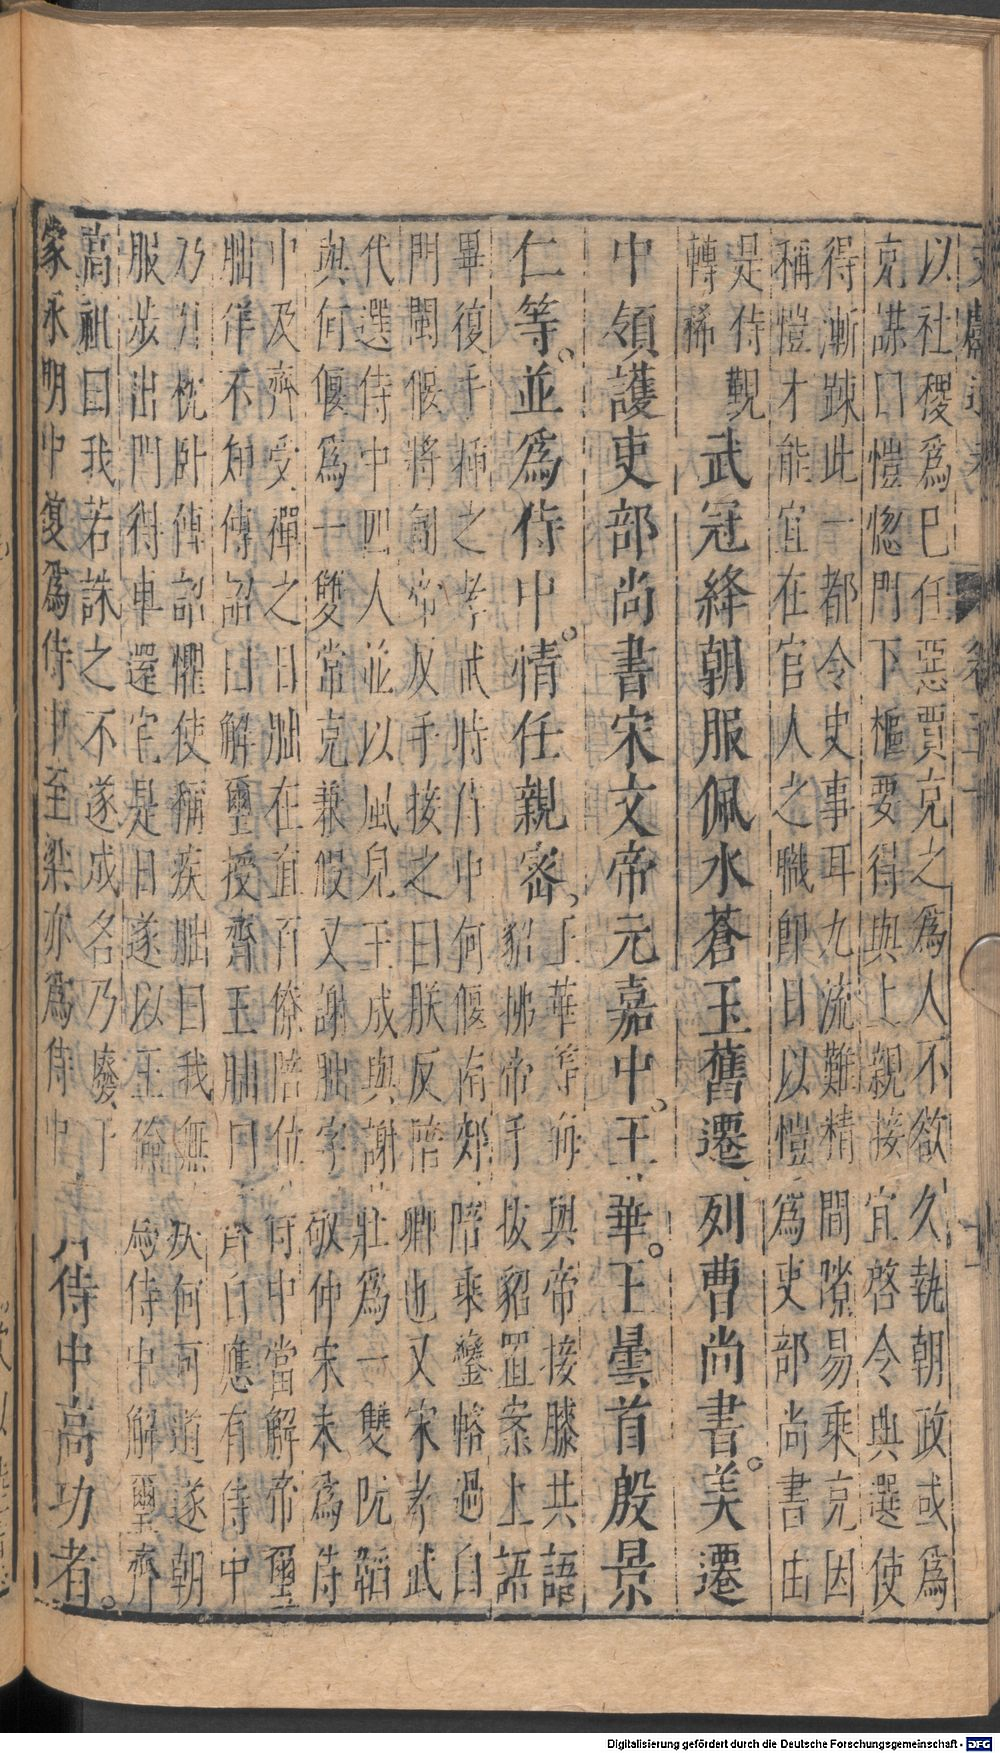 以社稷爲已任惡賈充之爲人不欲久執朝政或爲
充謀曰愷惚門下樞要得與上親接宜啓令典選使
得漸踈此一都令史事耳九流難精間隙易乘充因
稱愷才能宜在官人之職卽日以愷爲吏部尚書由
是侍覲
轉稀
武冠絳朝服佩水蒼玉舊遷列曹尚書。美遷
中領護吏部尚書宋文帝元嘉中。王華。王曇首殷景
仁等。並爲侍中。情任親密,
王華等每與帝接膝共語
貂拂帝手拔貂置案上語
畢復手插之孝武時侍中何偃南郊陪乘鑾輅過白
門閫偃將匐帝反手接之曰朕反陪卿也又宋孝武
代選侍中四人並以風皃王彧與謝莊爲一雙阮韜
與何偃爲一雙常充兼假又謝朏字敬仲宋末爲侍
中及齊受禪之日朏在直百僚陪位侍中當解帝璽
朏佯不知傳詔曰解璽授齊王朏曰齊自應有侍中
乃引枕卧傳詔懼使稱疾朏曰我無疾何所道遂朝
服步出門得車還宅是日遂以王儉爲侍中解璽齊
高祖曰我若誅之不遂成名乃廢于
家永明中復爲侍中至梁亦爲侍中
侍中高功者。
Digitalisierung gefördert durch die Deutsche Forschungsgemeinschaft - DFG